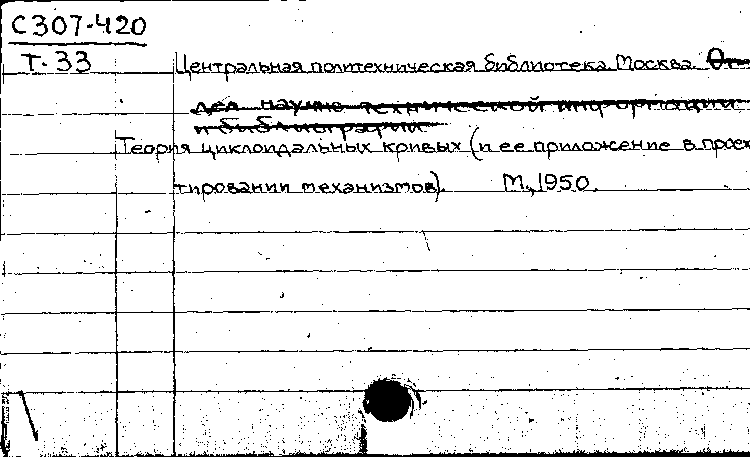 С307-420
Т-33
Центральная политехническая библиотека. Москва. От-
дел научно технической информации
и библиографии
Теория циклоидальных кривых (и ее приложение в проек
тировании механизмов). М., 1950.